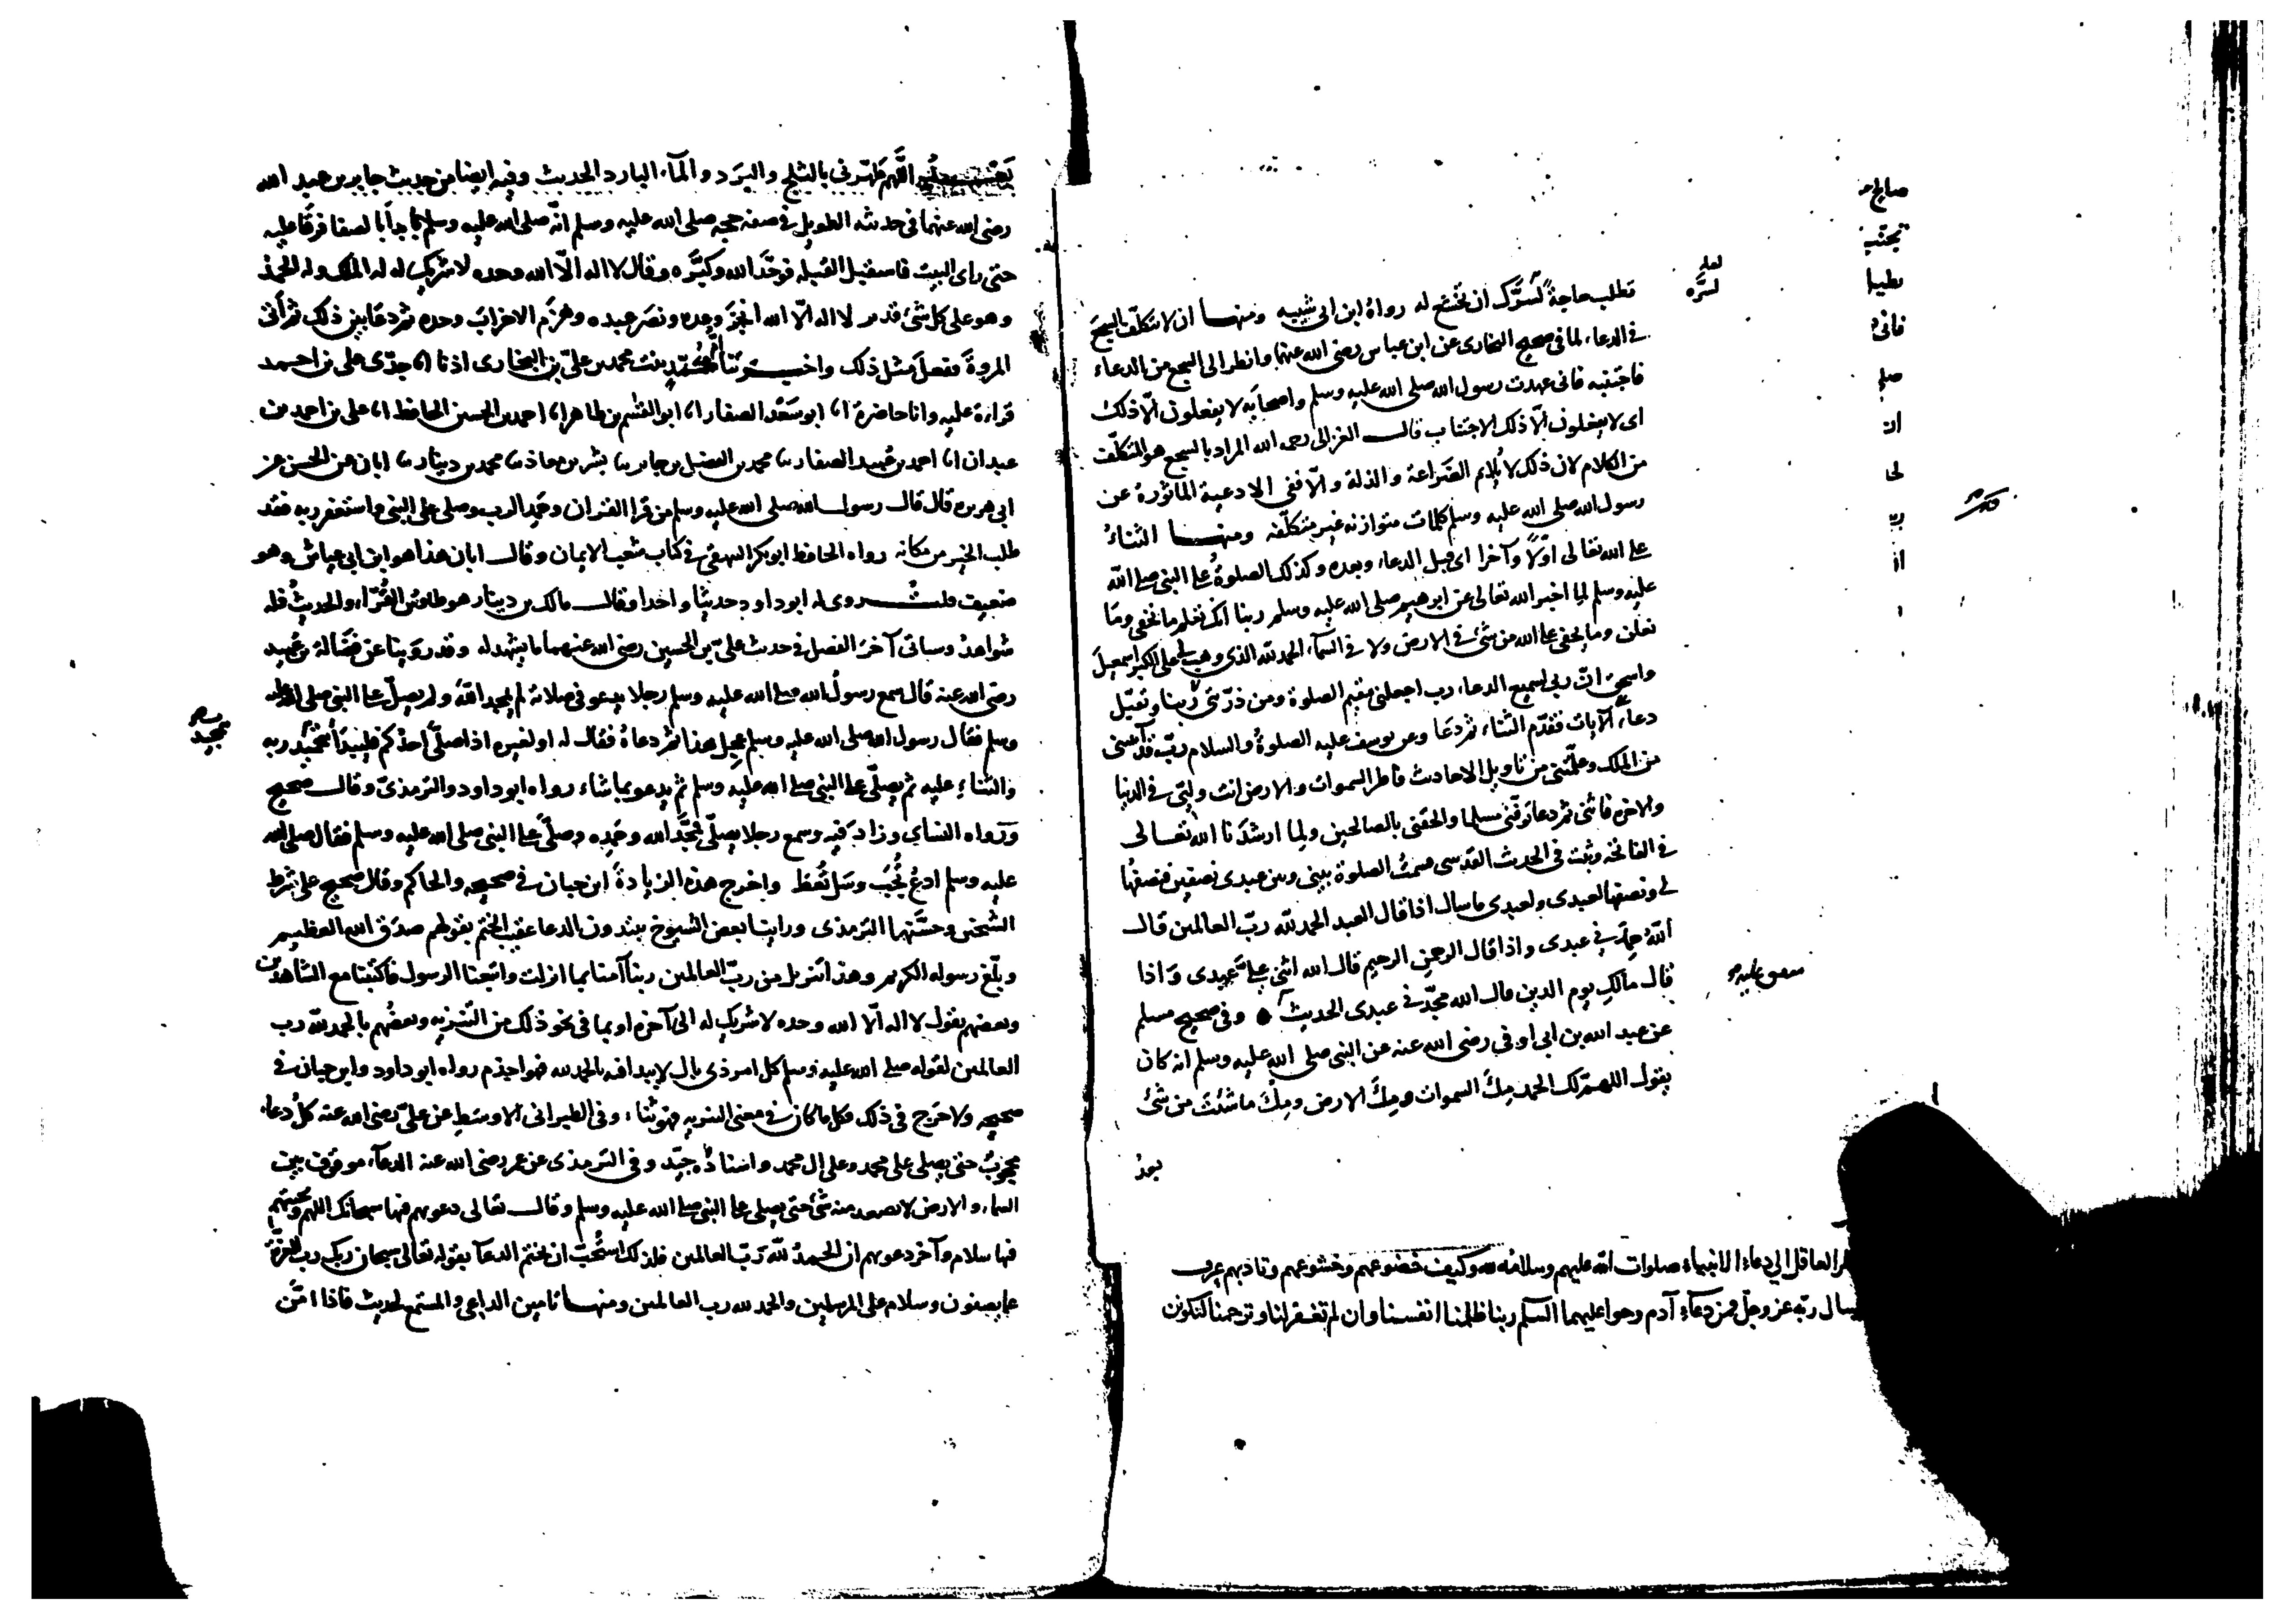 تطلب حاجة لسرك ان تخشع له رواه ابن ابى شيبه ومنها ان لا يتكلف السجع
فى الدعاء لما فى صحيح البخارى عن ابن عباس رضى الله عنهما وانظر الى السجع من الدعاء
فاجتنبه فانى عهدت رسول الله صلى الله عليه وسلم واصحابه لا يفعلون الّا ذلك
اى لا يفعلون الّا ذلك الاجتناب قال الغزالى رحمه الله المراد بالسجع هو المتكلّف
من الكلام لان ذلك لا يلايم الضراعة والذلة والّا ففى الادعية الماثورة عن
رسول الله صلى الله عليه وسلم كلمات متوازنه غير متكلّفه ومنها الثناء
على الله تعالى اوّلاً وآخرا اى قبل الدعاء وبعده وكذلك الصلوة على النبى صلى الله
عليه وسلم لما اخبر الله تعالى عن ابرهيم صلى الله عليه وسلم ربنا انك تعلم ما نخفى وما
نعلن وما يخفى على الله من شئ فى الارض ولا فى السمآء الحمد لله الذى وهب لى على الكبر اسمعيل
واسحق انّ ربى لسميع الدعاء رب اجعلنى مقيم الصلوة ومن ذرّيتى ربنا وتقبّل
دعاء الآيات فقدّم الثناء ثم دعا وعن يوسف عليه الصلوة والسلام ربّ قد آتيتنى
من الملك وعلّمتنى من تاويل الاحاديث فاطر السموات والارض انت وليّى فى الدنيا
والاخره فاثنى ثم دعا توفّنى مسلما والحقنى بالصالحين ولما ارشدنا الله تعالى
فى الفاتحه وثبت فى الحديث القدسى قسمت الصلوة بينى وبين عبدى نصفين فنصفها
لى ونصفها لعبدى ولعبدى ما سال اذا قال العبد الحمد لله ربّ العالمين قال
الله حمدنى عبدى واذا قال الرحمن الرحيم قال الله اثنى علىّ عبدى واذا
قال مالك يوم الدين قال الله مجّدنى عبدى الحديث وفى صحيح مسلم
عن عبد الله بن ابى اوفى رضى الله عنه عن النبى صلى الله عليه وسلم انه كان
يقول اللهمّ لك الحمد ملءَ السموات وملءَ الارض وملءَ ما شئت من شئ
بعدُ
العاقل الى دعاء الانبياء صلوات الله عليهم وسلامه وكيف خضوعهم وخشوعهم وتادبهم
ربّه عز وجلّ فمن دعآء آدم وحوا عليهما السلم ربنا ظلمنا انفسنا وان لم تغفر لنا وترحمنا لنكونن
لعله
لسرّه
اللّهم طهّرنى بالثلج والبَرَد والمآء البارد الحديث وفيه ايضا من حديث جابر بن عبد الله
رضى الله عنهما فى حديثه الطويل فى صفه حجه صلى الله عليه وسلم انّه صلى الله عليه وسلم بدأ بالصفا فرقا عليه
حتى راى البيت فاستقبل القبله فوحّد الله وكبّره وقال لا اله الّا الله وحده لا شريك له له الملك وله الحمد
وهو على كل شئ قدير لا اله الّا الله انجز وعده ونصر عبده وهزم الاحزاب وحده ثم دعا بين ذلك ثم أتى
المروة ففعل مثل ذلك واخبرتنا بنت محمد بن علىّ بن البخارى اذنا انا جدّى على بن احمد
قراءة عليه وانا حاضرة انا ابو سعد الصفار انا ابو القسم بن طاهر انا احمد بن الحسين الحافظ انا على بن احمد بن
عبدان انا احمد بن عُبيد الصفار نا محمد بن الفضل بن جابر نا بشر بن معاذ نا محمد بن دينار نا ابان عن الحسن عن
ابى هريره قال قال رسول الله صلى الله عليه وسلم من قرا القران وحمد الرب وصلى على النبى واستغفر ربه فقد
طلب الخير من مكانه رواه الحافظ ابو بكر البيهقى فى كتاب شعب الايمان وقال ابان هذا هو ابن ابى عياش وهو
ضعيف قلت روى له ابو داود حديثا واحدا وقال مالك بن دينار هو طاوس القرّاء والحديث فله
شواهد وسياتى آخر الفصل فى حديث علىّ بن الحسين رضى الله عنهما ما يشهد له وقد روينا عن فضالة بن عُبيد
رضى الله عنه قال سمع رسول الله صلى الله عليه وسلم رجلا يدعو فى صلاته لم يمجد الله ولم يصلّ على النبى صلى الله عليه
وسلم فقال رسول الله صلى الله عليه وسلم عجل هذا ثم دعاه فقال له او لغيره اذا صلّى احدكم فليبدأ بتحميد ربه
والثناء عليه ثم يصلّى على النبى صلى الله عليه وسلم ثم يدعو بما شاء رواه ابو داود والترمذىّ وقال صحيح
ورواه النساى وزاد فيه وسمع رجلا يصلّى فمجّد الله وحمده وصلّى على النبى صلى الله عليه وسلم فقال صلى الله
عليه وسلم ادع تُجَب وسل تُعط واخرج هذه الزيادة ابن حبان فى صحيحه والحاكم وقال صحيح على شرط
الشيخين وحسّنها الترمذى وراينا بعض الشيوخ يبتدون الدعا عقيب الختم بقولهم صدق الله العظيم
وبلّغ رسوله الكريم وهذا تنزيل من ربّ العالمين ربنا آمنا بما انزلت واتبعنا الرسول فاكتبنا مع الشاهدين
وبعضهم يقول لا اله الّا الله وحده لا شريك له الى آخره او بما فى نحو ذلك من التنزيه وبعضهم بالحمد لله رب
العالمين لقوله صلى الله عليه وسلم كل امر ذى بال لا يبدا فيه بالحمد لله فهو اجذم رواه ابو داود وابن حبان فى
صحيحه ولا حرج فى ذلك فكل ما كان فى معنى التنزيه فهو ثناء وفى الطبرانى الاوسط عن علىّ رضى الله عنه كل دعاء
محجوب حتى يصلى على محمد وعلى ال محمد واسناده جيّد وفى الترمذى عن عمر رضى الله عنه الدعآء موقوف بين
السماء والارض لا يصعد منه شئ حتى يصلى على النبى صلى الله عليه وسلم وقال تعالى دعويهم فيها سبحانك اللهم وتحيتهم
فيها سلام وآخر دعويهم ان الحمد لله ربّ العالمين فلذلك استُحبّ ان يختم الدعآ بقوله تعالى سبحان ربك رب العزّة
عما يصفون وسلام على المرسلين والحمد لله رب العالمين ومنها تامين الداعى والمستمع لحديث فاذا امّن